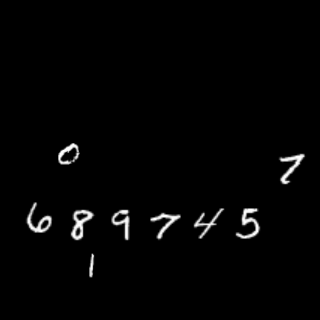 0
7
689745
1